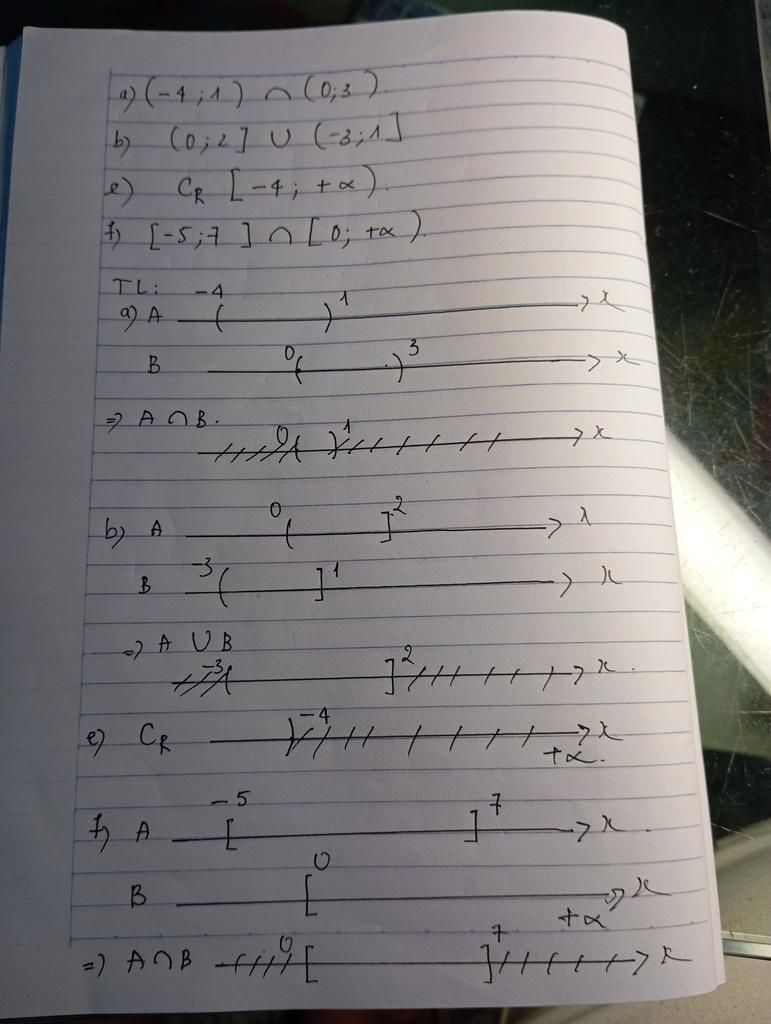 a) (-4;1) ∩ (0;3).
b) (0;2] ∪ (-3;1]
e) CR [-4; +∝).
f) [-5;7] ∩ [0; +∝).
TL:
a) A -4 ( ) 1 x
B 0 ( ) 3 x
⇒ A ∩ B.
0 ( ) 1 x
b) A 0 ( ] 2 x
B -3 ( ] 1 x
⇒ A ∪ B
-3 ( ] 2 x.
e) CR ) -4 x
+∝.
f) A -5 [ ] 7 x.
B 0 [ x
+∝
⇒ A ∩ B 0 [ ] 7 x